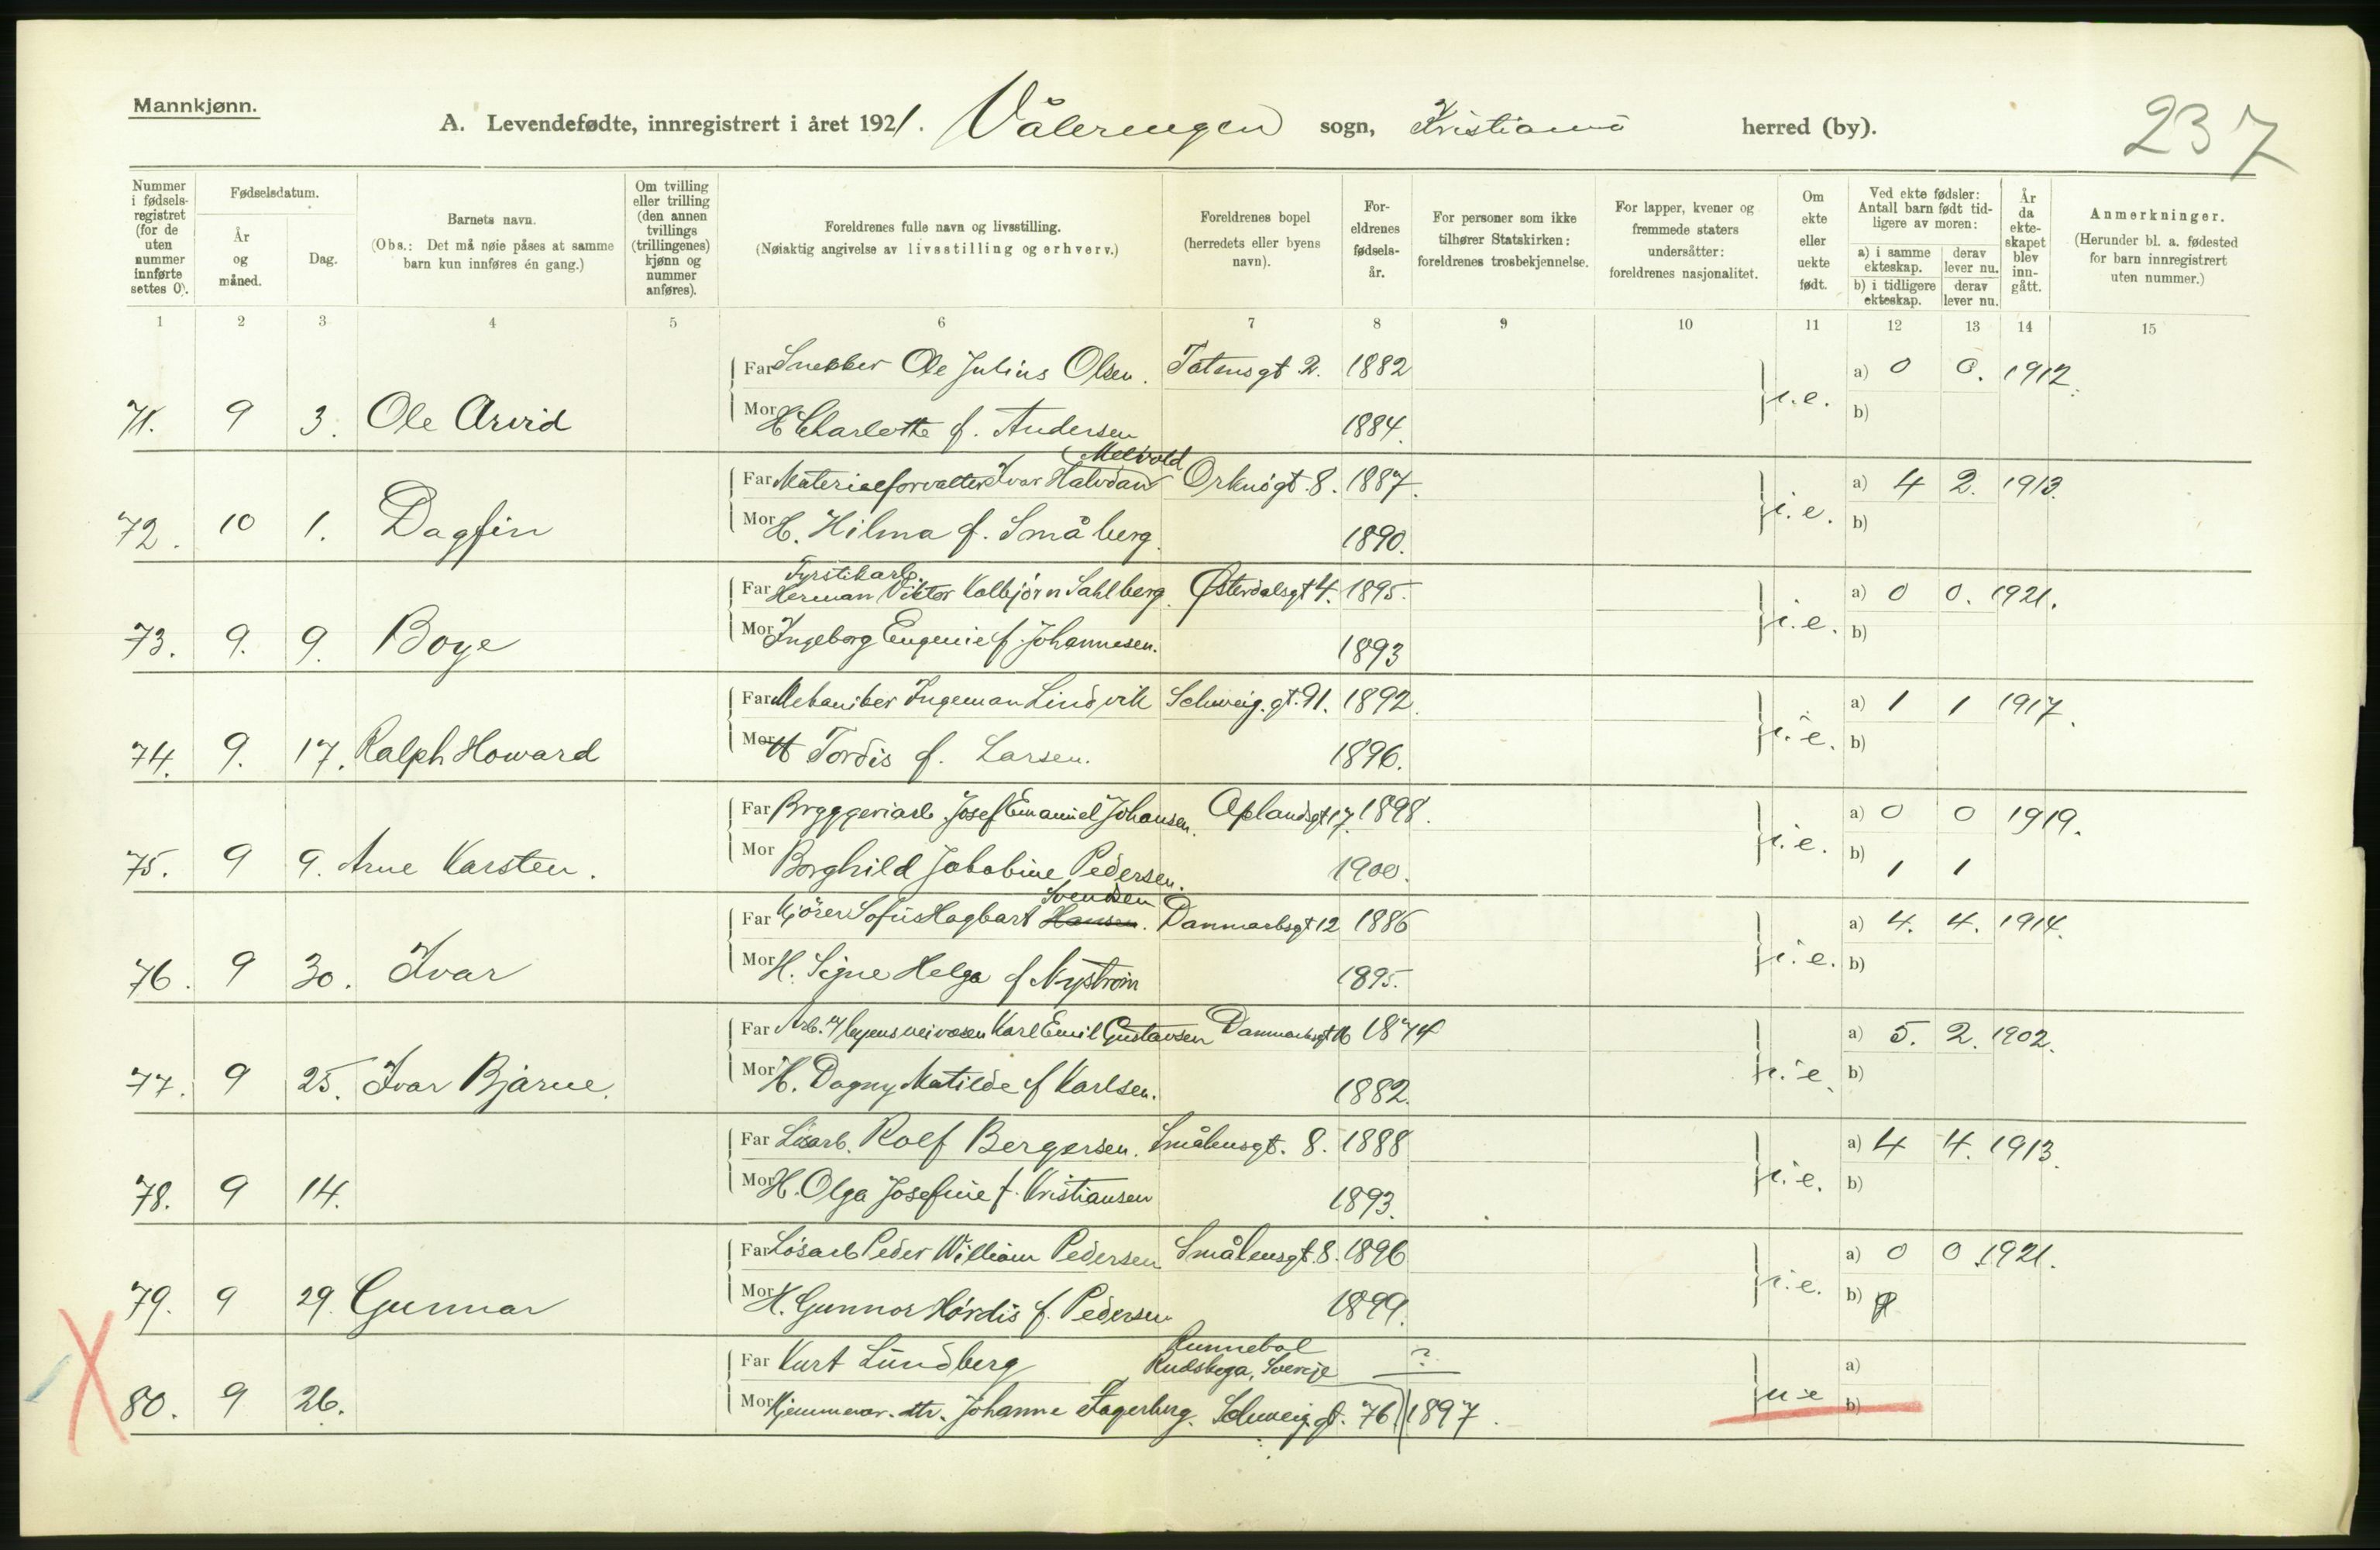 Mannkjønn.
A. Levendefødte, innregistrert i året 1921. Vålerengen sogn, Kristiania herred (by).
237
Nummer i fødsels-registret (for de uten nummer innførte settes 0).
Fødselsdatum.
År og måned.
Dag.
Barnets navn.
(Obs.: Det må nøie påses at samme barn kun innføres én gang.)
Om tvilling eller trilling (den annen tvillings (trillingenes) kjønn og nummer anføres).
Foreldrenes fulle navn og livsstilling.
(Nøiaktig angivelse av livsstilling og erhverv.)
Foreldrenes bopel (herredets eller byens navn).
For-eldrenes fødsels-år.
For personer som ikke tilhører Statskirken: foreldrenes trosbekjennelse.
For lapper, kvener og fremmede staters undersåtter: foreldrenes nasjonalitet.
Om ekte eller uekte født.
Ved ekte fødsler: Antall barn født tid-ligere av moren:
a) i samme ekteskap. derav lever nu.
b) i tidligere ekteskap. derav lever nu.
År da ekte-skapet blev inn-gått.
Anmerkninger.
(Herunder bl. a. fødested for barn innregistrert uten nummer.)
1 2 3 4 5 6 7 8 9 10 11 12 13 14 15
Far Snekker Ole Julius Olsen. Totensgt 2. 1882 a) 0 0. 1912.
71. 9 3. Ole Arvid Mor H Charlotte f. Andersen 1884. i.e. b)
Melvold
Far Materialforvalter Ivar Halvdan Orknøgt. 8. 1887. a) 4 2. 1913.
72. 10 1. Dagfin Mor H. Hilma f. Småberg. 1890. i.e. b)
Fyrstikarb.
Far Herman Viktor Kolbjørn Sahlberg. Østerdalsgt 4. 1895. a) 0 0. 1921.
73. 9. 9. Boye Mor Ingeborg Eugenie f. Johannesen. 1893 i.e. b)
Far Mekaniker Ingeman Lindvik Schweig. gt. 91. 1892. a) 1 1 1917.
74. 9. 17. Ralph Howard Mor H Tordis f. Larsen. 1896. i.e. b)
Far Bryggeriarb. Josef Emanuel Johansen. Oplandsgt 17. 1898. a) 0 0 1919.
75. 9 9. Arne Karsten. Mor Borghild Jakobine Pedersen. 1900. i.e. b) 1 1
Svendsen
Far Kjører Sofus Hagbart Hansen. Danmarksgt 12 1886 a) 4. 4. 1914.
76. 9 30. Ivar Mor H. Signe Helga f Nystrøm 1895. i.e. b)
Far Arb. v/ byens veivæsen Karl Emil Gustavsen Danmarksgt 16 1874 a) 5. 2. 1902.
77. 9 25. Ivar Bjarne. Mor H. Dagny Matilde f Karlsen. 1882. i.e. b)
Far Løsarb. Rolf Bergersen. Smålensgt. 8. 1888 a) 4 4. 1913.
78. 9 14. Mor H. Olga Josefine f. Kristiansen 1893. i.e. b)
Far Løsarb Peder William Pedersen Smålensgt. 8. 1896 a) 0 0. 1921.
79. 9 29. Gunnar Mor H. Gunnor Hørdis f. Pedersen 1899. i.e. b)
Far Kurt Lundberg Rudskoga, Sverige ? a)
80. 9 26. Mor Hjemmevær. dtr. Johanne Fagerberg. Schweig. gt. 76. 1897. u e b)